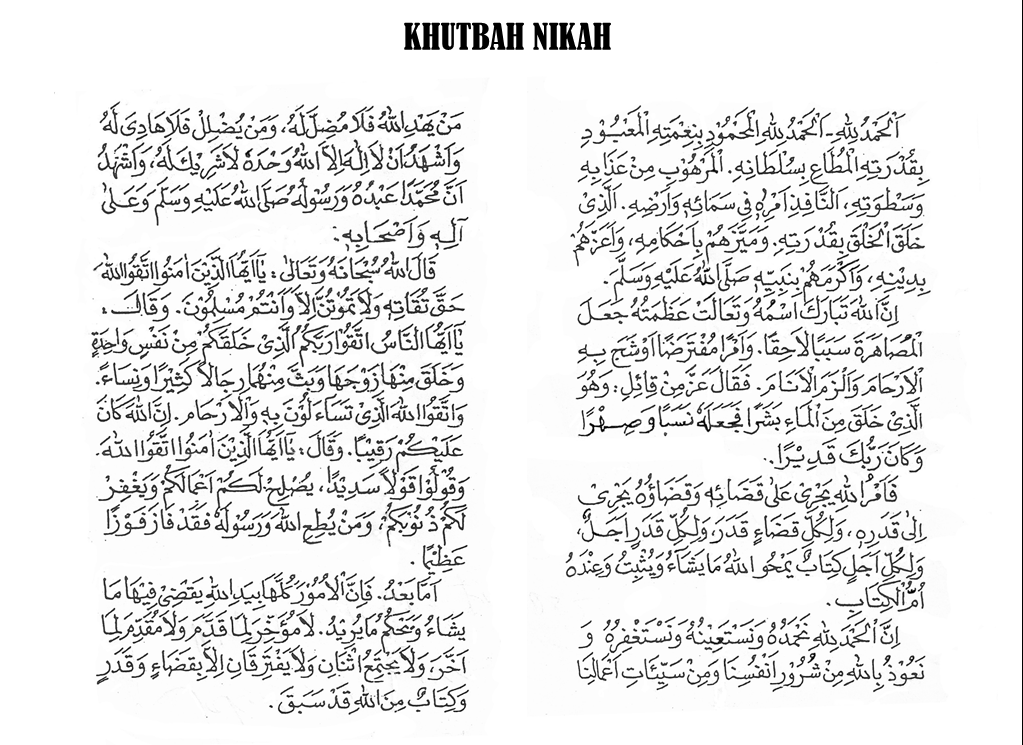 KHUTBAH NIKAH
اَلْحَمْدُ لِلّٰهِ - اَلْحَمْدُ لِلّٰهِ الْمَحْمُوْدِ بِنِعْمَتِهِ الْمَعْبُوْدِ
بِقُدْرَتِهِ الْمُطَاعِ بِسُلْطَانِهِ. اَلْمَرْهُوْبِ مِنْ عَذَابِهِ
وَسَطْوَتِهِ، اَلنَّافِذِ اَمْرُهُ فِى سَمَائِهِ وَاَرْضِهِ. اَلَّذِىْ
خَلَقَ الْخَلْقَ بِقُدْرَتِهِ. وَمَيَّزَهُمْ بِاَحْكَامِهِ، وَاَعَزَّهُمْ
بِدِيْنِهِ، وَاَكْرَمَهُمْ بِنَبِيِّهِ صَلَّى اللهُ عَلَيْهِ وَسَلَّمَ.
اِنَّ اللهَ تَبَارَكَ اسْمُهُ وَتَعَالَتْ عَظَمَتُهُ جَعَلَ
الْمُصَاهَرَةَ سَبَبًا لَاحِقًا. وَاَمْرًا مُفْتَرَضًا اَوْشَجَ بِهِ
الْاَرْحَامَ وَاَلْزَمَ الْاَنَامَ. فَقَالَ عَزَّ مِنْ قَائِلٍ: وَهُوَ
الَّذِىْ خَلَقَ مِنَ الْمَاءِ بَشَرًا فَجَعَلَهُ نَسَبًا وَصِهْرًا
وَكَانَ رَبُّكَ قَدِيْرًا.
فَاَمْرُ اللهِ يَجْرِىْ عَلَى قَضَائِهِ وَقَضَاؤُهُ يَجْرِىْ
اِلَى قَدَرِهِ، وَلِكُلِّ قَضَاءٍ قَدَرٌ، وَلِكُلِّ قَدَرٍ اَجَلٌ،
وَلِكُلِّ اَجَلٍ كِتَابٌ يَمْحُو اللهُ مَا يَشَاءُ وَيُثْبِتُ وَعِنْدَهُ
اُمُّ الْكِتَابِ.
اِنَّ الْحَمْدَ لِلّٰهِ نَحْمَدُهُ وَنَسْتَعِيْنُهُ وَنَسْتَغْفِرُهُ وَ
نَعُوْذُ بِاللهِ مِنْ شُرُوْرِ اَنْفُسِنَا وَمِنْ سَيِّئَاتِ اَعْمَالِنَا
مَنْ يَهْدِ اللهُ فَلَا مُضِلَّ لَهُ، وَمَنْ يُضْلِلْ فَلَا هَادِىَ لَهُ
وَاَشْهَدُ اَنْ لَا اِلٰهَ اِلَّا اللهُ وَحْدَهُ لَا شَرِيْكَ لَهُ، وَاَشْهَدُ
اَنَّ مُحَمَّدًا عَبْدُهُ وَرَسُوْلُهُ صَلَّى اللهُ عَلَيْهِ وَسَلَّمَ وَعَلَى
آلِهِ وَاَصْحَابِهِ:
قَالَ اللهُ سُبْحَانَهُ وَتَعَالَى: يٰۤاَيُّهَا الَّذِيْنَ اٰمَنُوا اتَّقُوا اللهَ
حَقَّ تُقَاتِهِ وَلَا تَمُوْتُنَّ اِلَّا وَاَنْتُمْ مُسْلِمُوْنَ. وَقَالَ:
يٰۤاَيُّهَا النَّاسُ اتَّقُوْا رَبَّكُمُ الَّذِىْ خَلَقَكُمْ مِنْ نَفْسٍ وَاحِدَةٍ
وَخَلَقَ مِنْهَا زَوْجَهَا وَبَثَّ مِنْهُمَا رِجَالًا كَثِيْرًا وَنِسَاءً.
وَاتَّقُوا اللهَ الَّذِىْ تَسَاءَلُوْنَ بِهِ وَالْاَرْحَامَ. اِنَّ اللهَ كَانَ
عَلَيْكُمْ رَقِيْبًا. وَقَالَ: يٰۤاَيُّهَا الَّذِيْنَ اٰمَنُوا اتَّقُوا اللهَ.
وَقُوْلُوْا قَوْلًا سَدِيْدًا، يُصْلِحْ لَكُمْ اَعْمَالَكُمْ وَيَغْفِرْ
لَكُمْ ذُنُوْبَكُمْ، وَمَنْ يُطِعِ اللهَ وَرَسُوْلَهُ فَقَدْ فَازَ فَوْزًا
عَظِيْمًا.
اَمَّا بَعْدُ. فَاِنَّ الْاُمُوْرَ كُلَّهَا بِيَدِ اللهِ يَقْضِىْ فِيْهَا مَا
يَشَاءُ وَيَحْكُمُ مَا يُرِيْدُ. لَا مُؤَخِّرَ لِمَا قَدَّمَ وَلَا مُقَدِّمَ لِمَا
اَخَّرَ، وَلَا يَجْتَمِعُ اثْنَانِ وَلَا يَفْتَرِقَانِ اِلَّا بِقَضَاءٍ وَقَدَرٍ
وَكِتَابٌ مِنَ اللهِ قَدْ سَبَقَ.